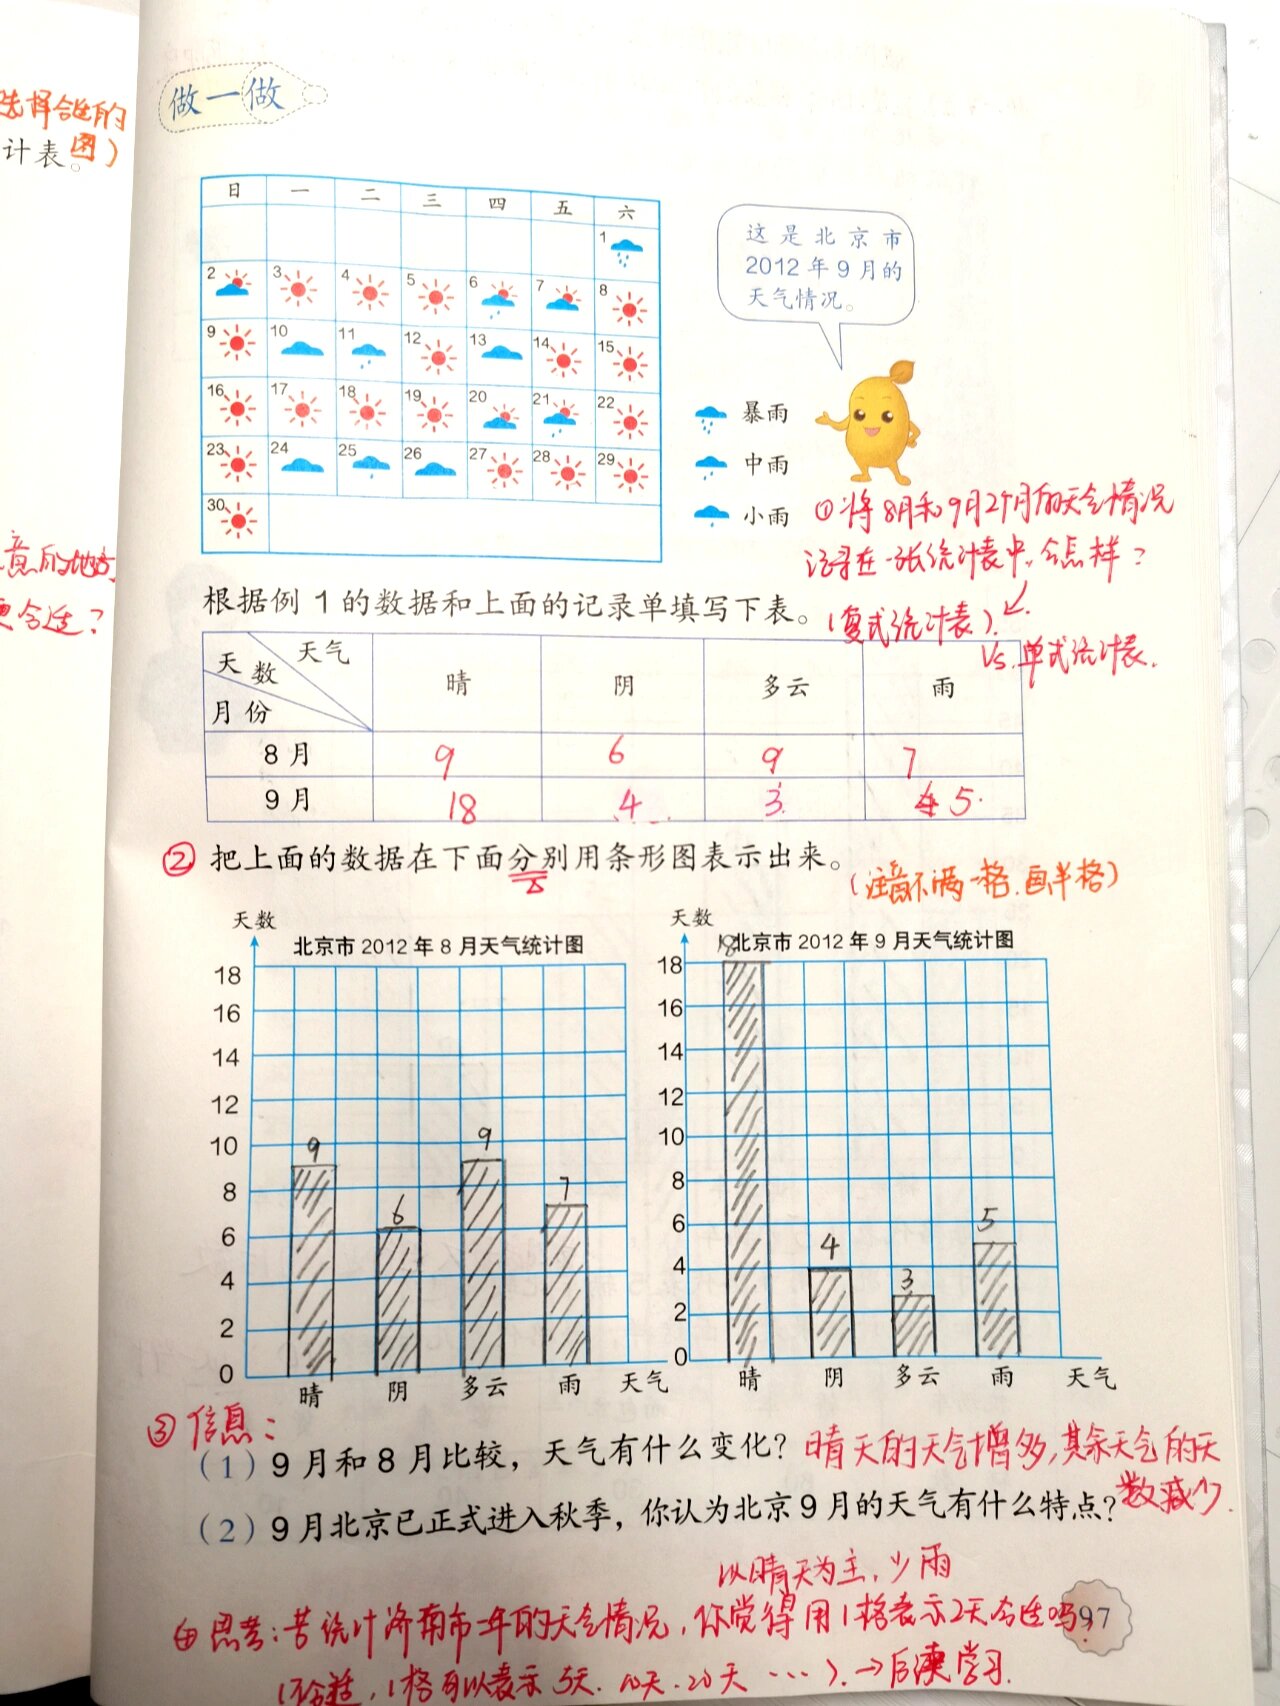 选择合适的
计表。图）
意的地方
更合适？
做一做
日 一 二 三 四 五 六
1
2 3 4 5 6 7 8
9 10 11 12 13 14 15
16 17 18 19 20 21 22
23 24 25 26 27 28 29
30
这是北京市
2012年9月的
天气情况。
暴雨
中雨
小雨
①将8月和9月2个月的天气情况
记录在一张统计表中,会怎样?
根据例 1 的数据和上面的记录单填写下表。
(复式统计表)
Vs.单式统计表.
天数 天气 月份 晴 阴 多云 雨
8月 9 6 9 7
9月 18 4 3 5
②把上面的数据在下面分别用条形图表示出来。
(注意不满一格.画半格)
天数
北京市 2012 年 8 月天气统计图
18
16
14
12
10
8
6
4
2
0
9 6 9 7
晴 阴 多云 雨 天气
天数
18
北京市 2012 年 9 月天气统计图
18
16
14
12
10
8
6
4
2
0
4 3 5
晴 阴 多云 雨 天气
③信息:
(1)9月和8月比较，天气有什么变化?
晴天的天气增多,其余天气的天
数减少.
(2)9月北京已正式进入秋季，你认为北京9月的天气有什么特点?
以晴天为主,少雨
④思考:若统计济南市一年的天气情况,你觉得用1格表示2天合适吗?
97
(不合适,1格可以表示5天.10天.20天……).→后续学习.